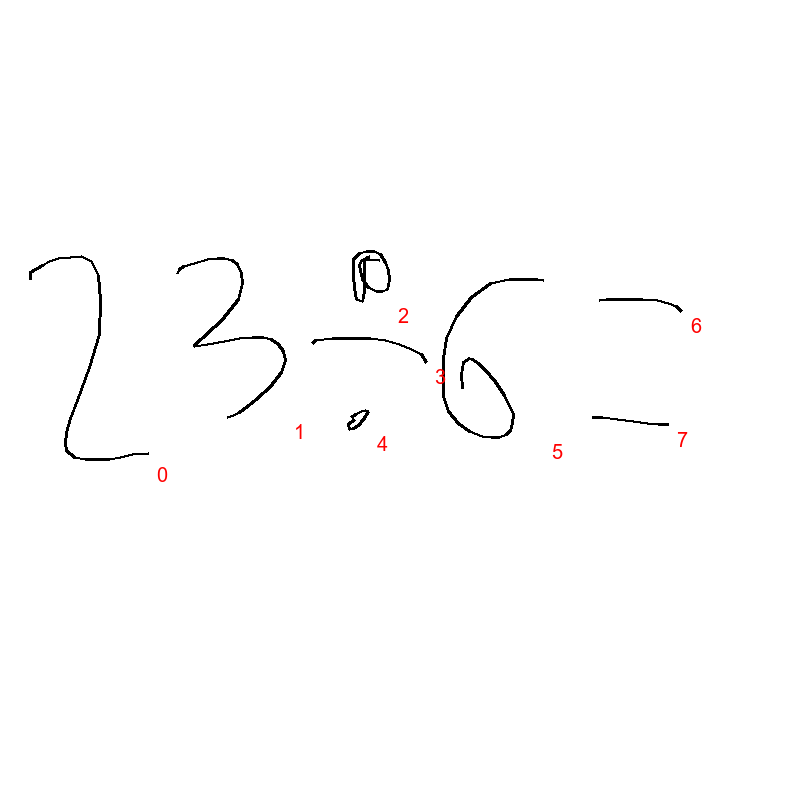 23÷6=
0 1 2 3 4 5 6 7